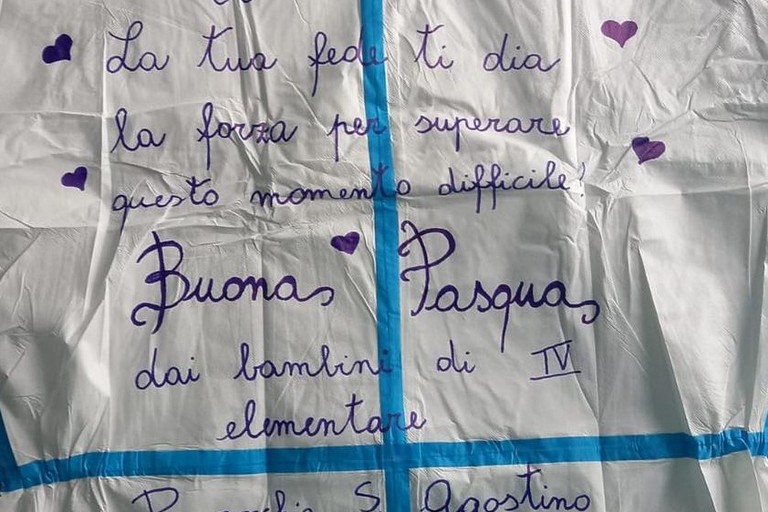 La tua fede ti dia
la forza per superare
questo momento difficile!
Buona Pasqua
dai bambini di IV
elementare
S. Agostino